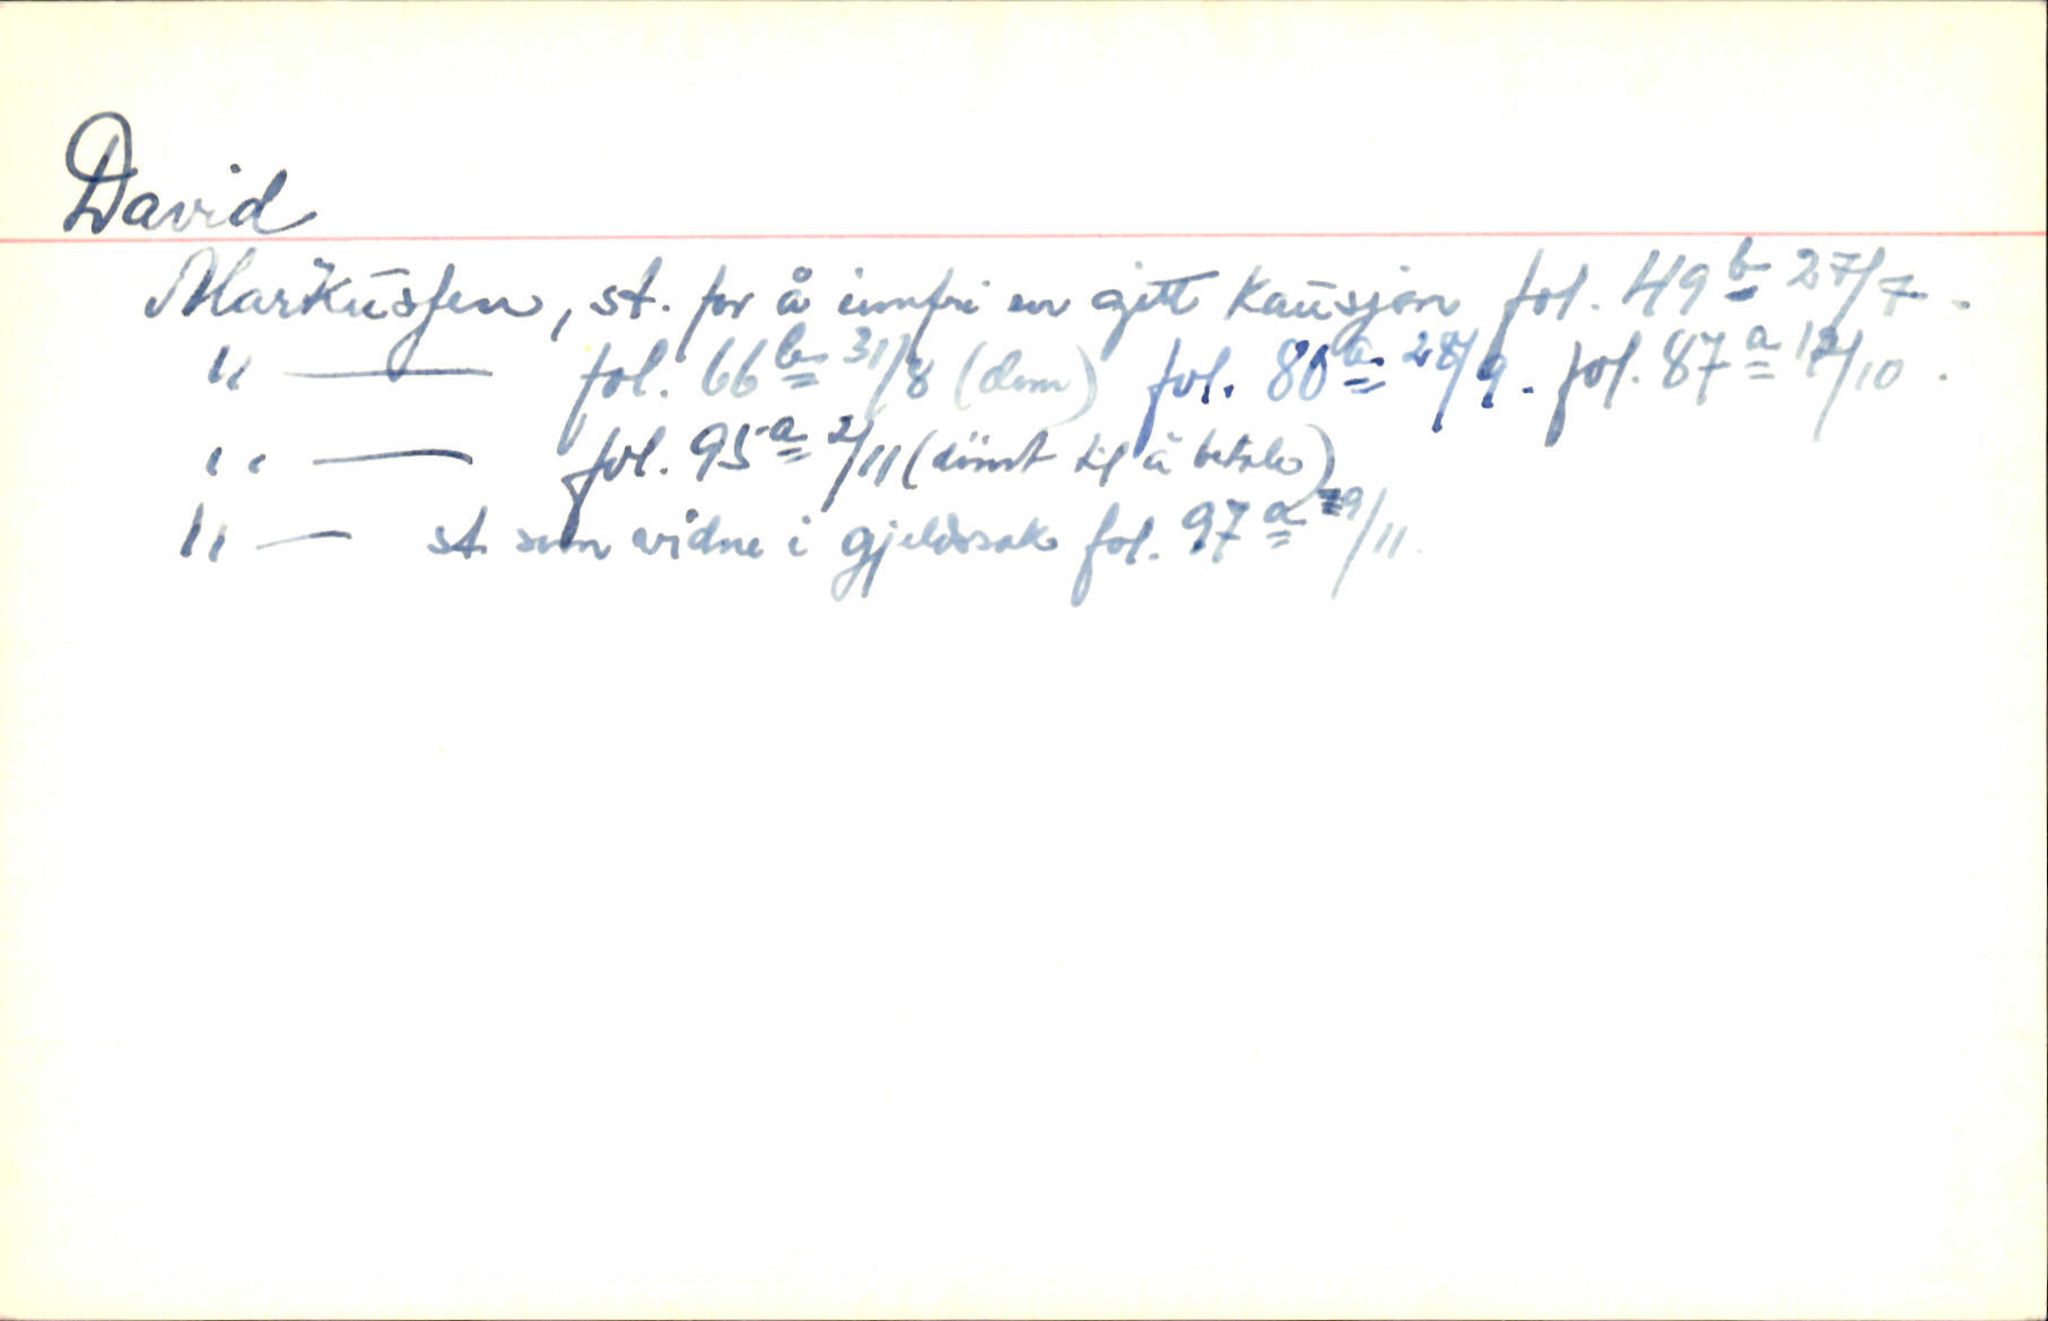 David
Markussen, st. for å innfri en gitt kausjon fol. 49 b 27/7.
" — fol. 66 b 31/8 (dom) fol. 80 a 28/9. fol. 87 a 12/10.
" — fol. 95 a 2/11 (dömt til å betale)
" — st. som vidne i gjeldssak fol. 97 a 9/11.